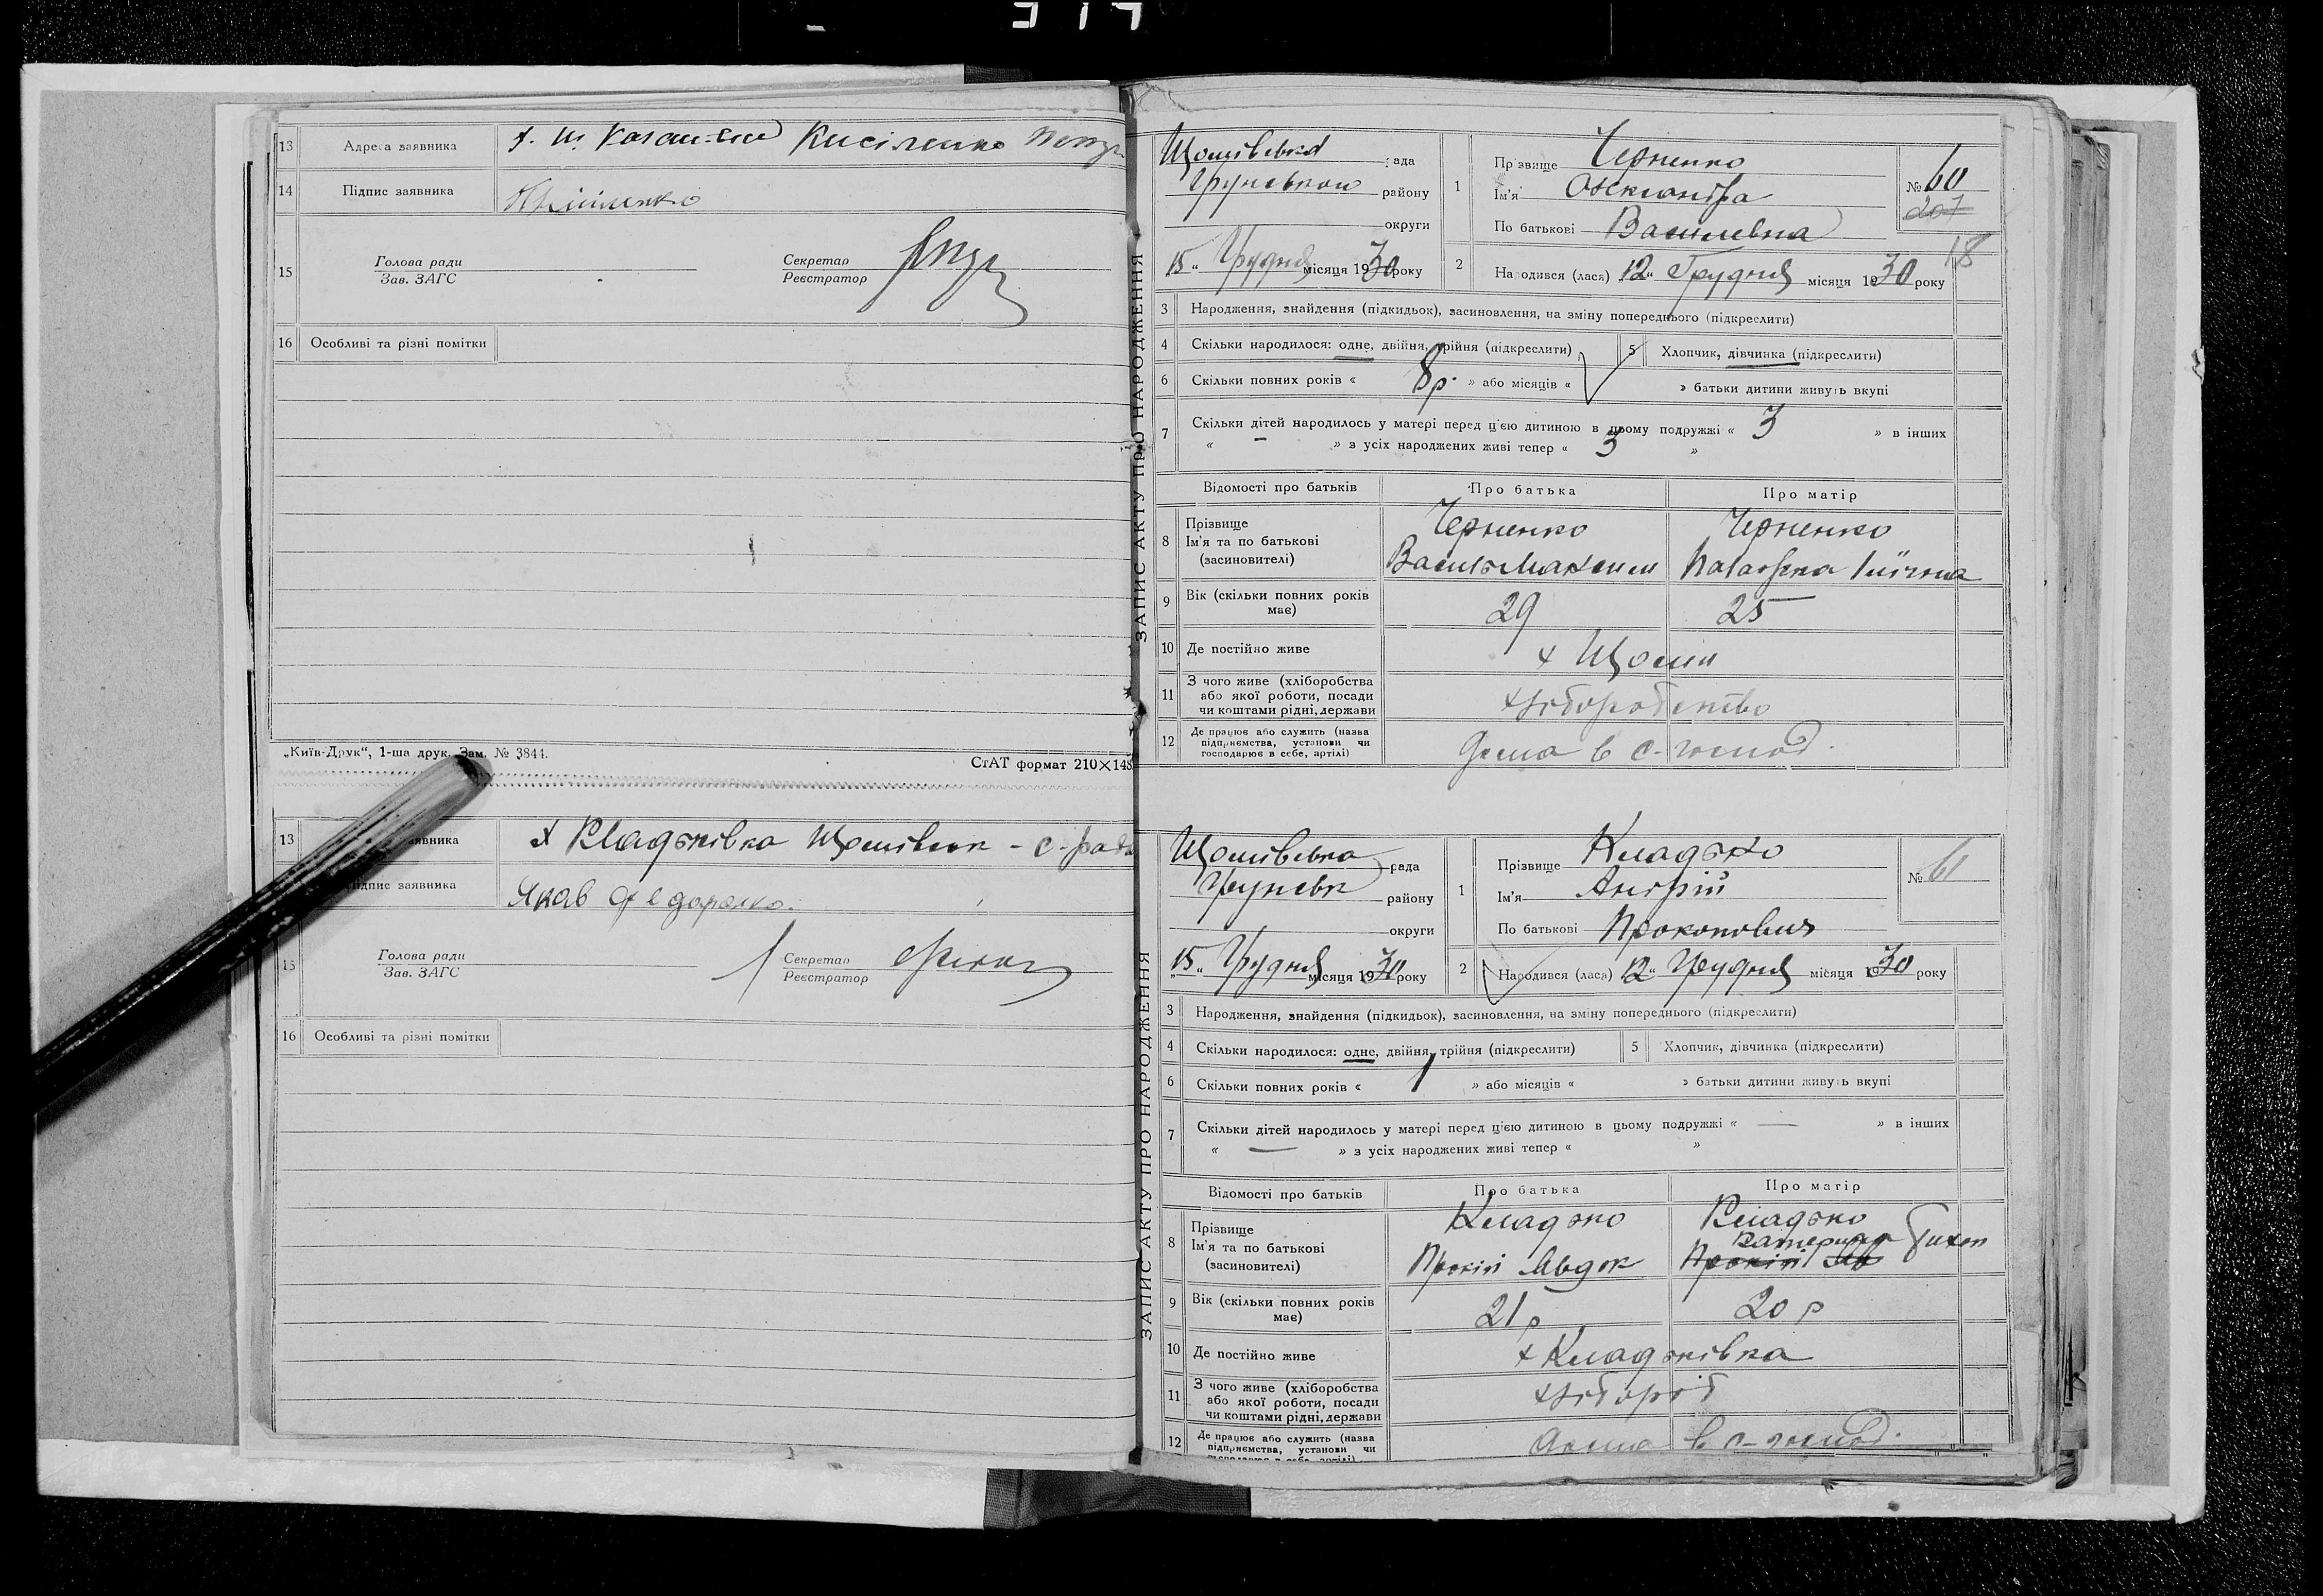 13 Адреса заявника Кисіленко
14 Підпис заявника
15 Голова ради Секретар
Зав. ЗАГС Реєстратор
16 Особливі та різні помітки
„Київ-Друк“, 1-ша друк. Зам. № 3844.
СтАТ формат 210×148
13 явника х Кладьківка - с-рада
Підпис заявника Яков
15 Голова ради Секретар
Зав. ЗАГС Реєстратор
16 Особливі та різні помітки
ЗАПИС АКТУ ПРО НАРОДЖЕННЯ
рада
району
округи
15 „ Грудня місяця 1930 року
1 Прізвище Черненко
Ім'я Олександра
По батькові Василевна
№ 60
207
18
2 Народився (лася) „12“ Грудня місяця 1930 року
3 Народження, знайдення (підкидьок), засиновлення, на зміну попереднього (підкреслити)
4 Скільки народилося: одне, двійня, трійня (підкреслити) 5 Хлопчик, дівчинка (підкреслити)
6 Скільки повних років « 8р. » або місяців « » батьки дитини живуть вкупі
7 Скільки дітей народилось у матері перед цією дитиною в цьому подружжі « 3 » в інших
« — » з усіх народжених живі тепер « 3 »
Відомості про батьків Про батька Про матір
8 Прізвище Черненко Черненко
Ім'я та по батькові
(засиновителі) Василь Максим Іллічна
9 Вік (скільки повних років має) 29 25
10 Де постійно живе х
11 З чого живе (хліборобства
або якої роботи, посади
чи коштами рідні, держави хліборобство
12 Де працює або служить (назва
підприємства, установи чи
господарює в себе, артілі) дома в с-господ.
ЗАПИС АКТУ ПРО НАРОДЖЕННЯ
рада
району
округи
„15“ Грудня місяця 1930 року
1 Прізвище Кладько
Ім'я Андрій
По батькові Прокопович
№ 61
2 Народився (лася) 12“ Грудня місяця 1930 року
3 Народження, знайдення (підкидьок), засиновлення, на зміну попереднього (підкреслити)
4 Скільки народилося: одне, двійня, трійня (підкреслити) 5 Хлопчик, дівчинка (підкреслити)
6 Скільки повних років « 1 » або місяців « » батьки дитини живуть вкупі
7 Скільки дітей народилось у матері перед цією дитиною в цьому подружжі « — » в інших
« — » з усіх народжених живі тепер « »
Відомості про батьків Про батька Про матір
8 Прізвище Кладько Кладько
Ім'я та по батькові Катерина Тихон
(засиновителі) Прокіп Авдок Прокіп Ав
9 Вік (скільки повних років має) 21 р 20 р
10 Де постійно живе х Кладьківка
11 З чого живе (хліборобства
або якої роботи, посади
чи коштами рідні, держави хлібороб
12 Де працює або служить (назва
підприємства, установи чи дома в с-господ.